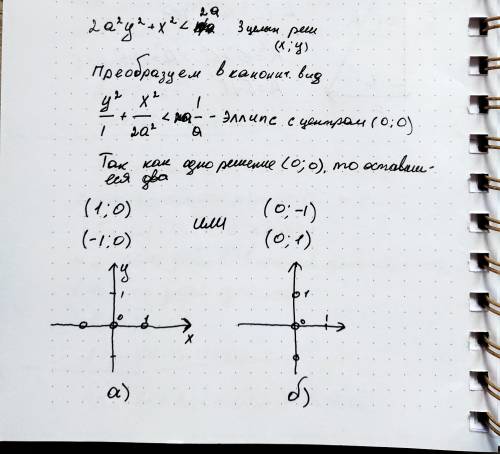 2a²y² + x² < 2a 3 целых реш
(x; y)
Преобразуем в канонич. вид
y²/1 + x²/2a² < 1/a - эллипс с центром (0; 0)
Так как одно решение (0; 0), то оставши-
еся два
(1; 0) или (0; -1)
(-1; 0) (0; 1)
y
1 1
0 1 x 0 1
а) б)